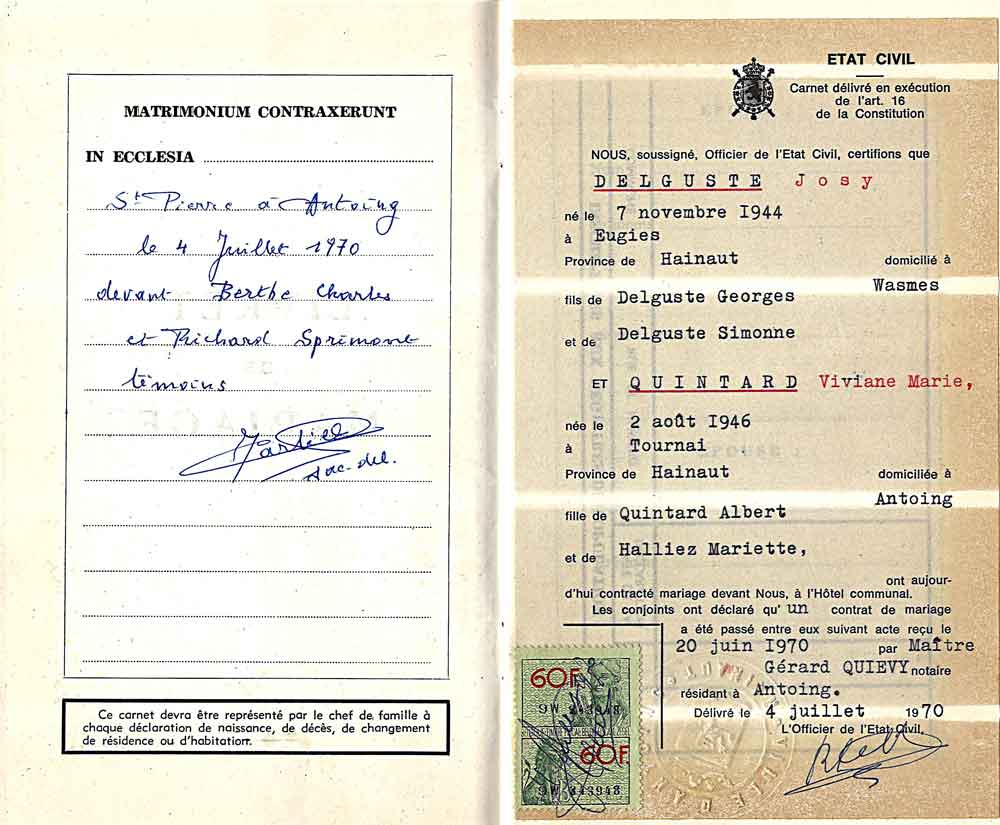 MATRIMONIUM CONTRAXERUNT
IN ECCLESIA
St Pierre à Antoing
le 4 Juillet 1970
devant Berthe Charles
et Richard Sprimont
témoins
Ce carnet devra être représenté par le chef de famille à
chaque déclaration de naissance, de décès, de changement
de résidence ou d'habitation.
ETAT CIVIL
Carnet délivré en exécution
de l'art. 16
de la Constitution
NOUS, soussigné, Officier de l'Etat Civil, certifions que
DELGUSTE Josy
né le 7 novembre I944
à Eugies
Province de Hainaut domicilié à
Wasmes
fils de Delguste Georges
et de Delguste Simonne
ET QUINTARD Viviane Marie,
née le 2 août I946
à Tournai
Province de Hainaut domiciliée à
Antoing
fille de Quintard Albert
et de Halliez Mariette,
ont aujour-
d'hui contracté mariage devant Nous, à l'Hôtel communal.
Les conjoints ont déclaré qu' un contrat de mariage
a été passé entre eux suivant acte reçu le
20 juin I970 par Maître
Gérard QUIEVY notaire
résidant à Antoing.
Délivré le 4 juillet 1970
L'Officier de l'Etat Civil,
60F
9W 343948
60F
9W 343948